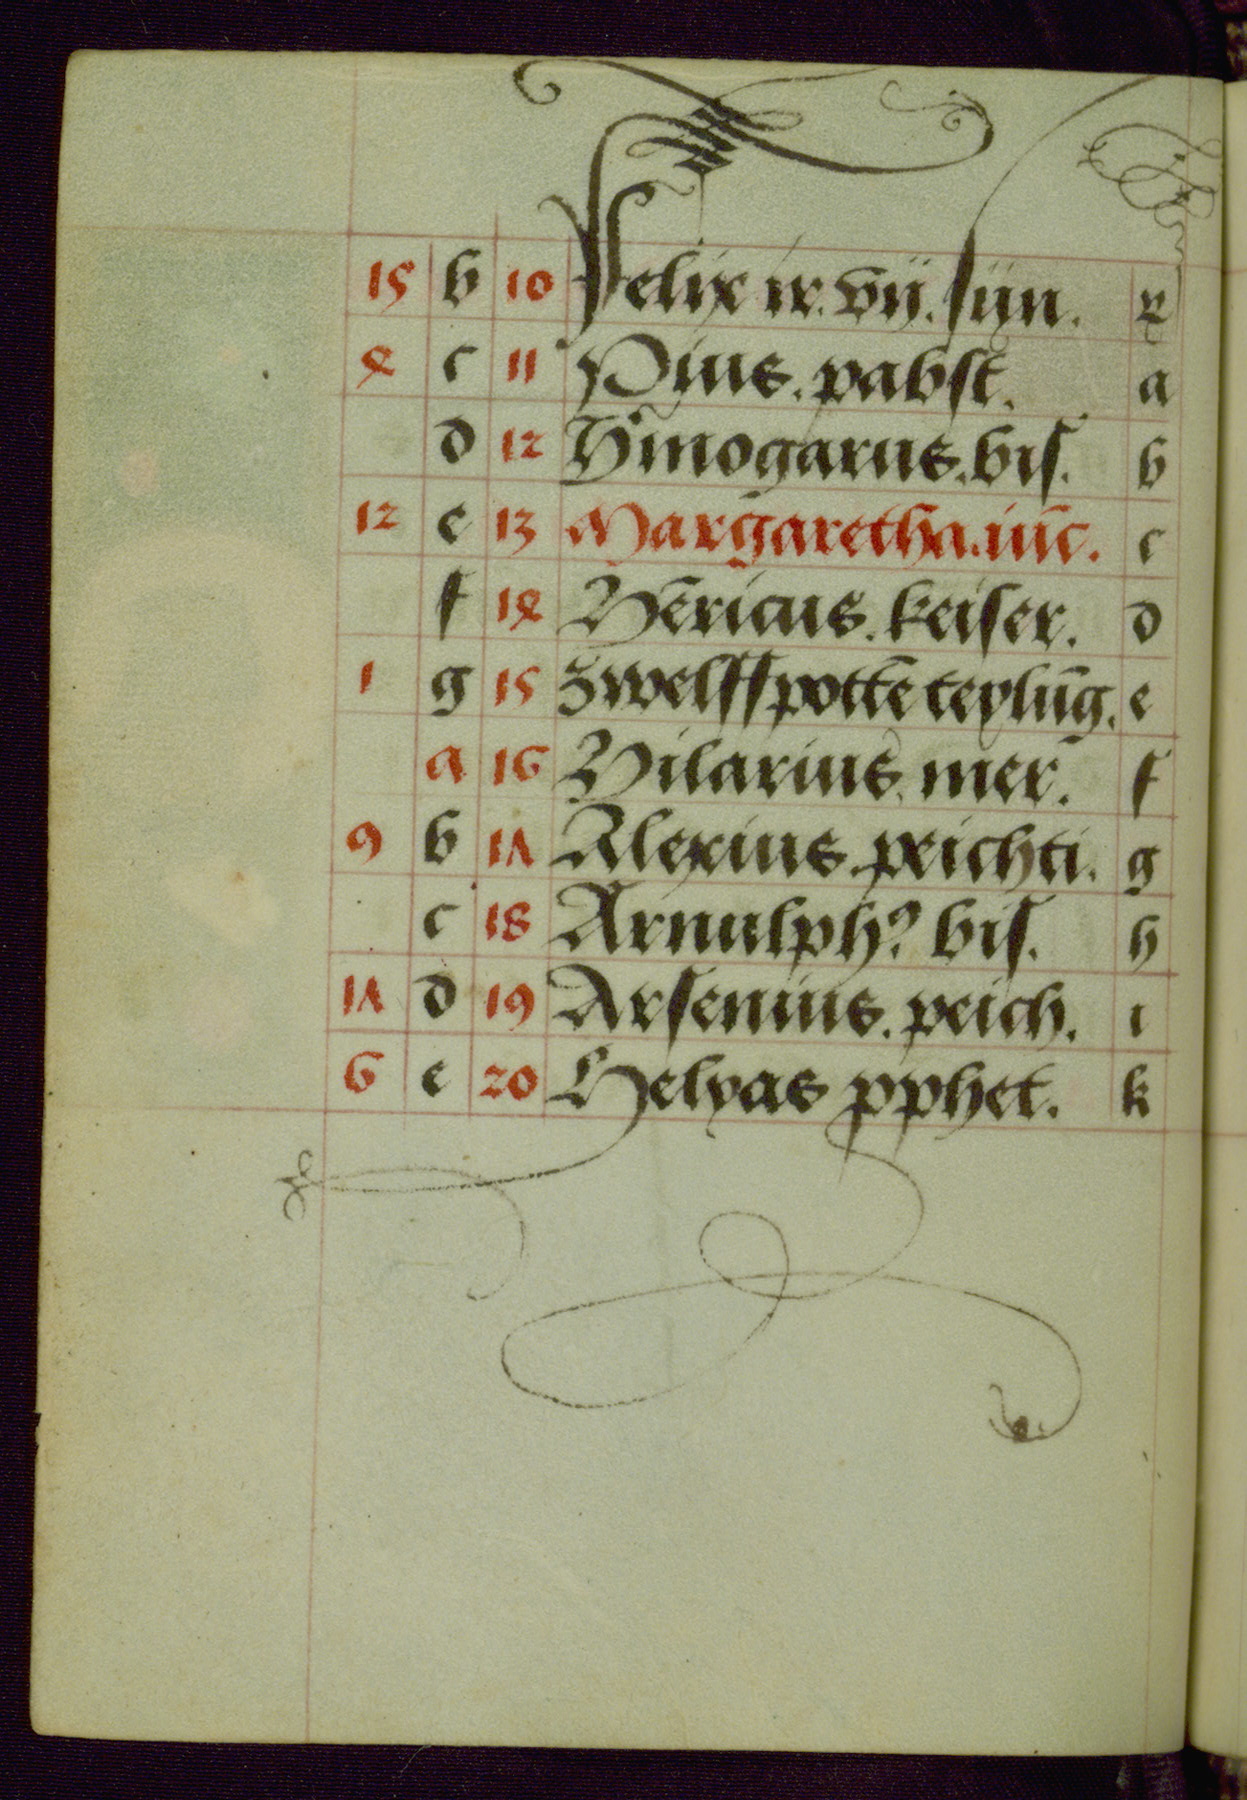 15 b 10 Felix ir. vij. sün.
4 c 11 Pius. pabst. a
d 12 H̃mogarus. bis. b
12 e 13 Margaretha. iũc. c
f 14 Hẽricus. keiser. d
1 g 15 Zwelffpottẽ teylũg. e
a 16 Hilarius. mer. f
9 b 17 Alexius. peichti. g
c 18 Arnulph9 bis. h
17 d 19 Arsenius. peich. i
6 e 20 Helyas pphet. k